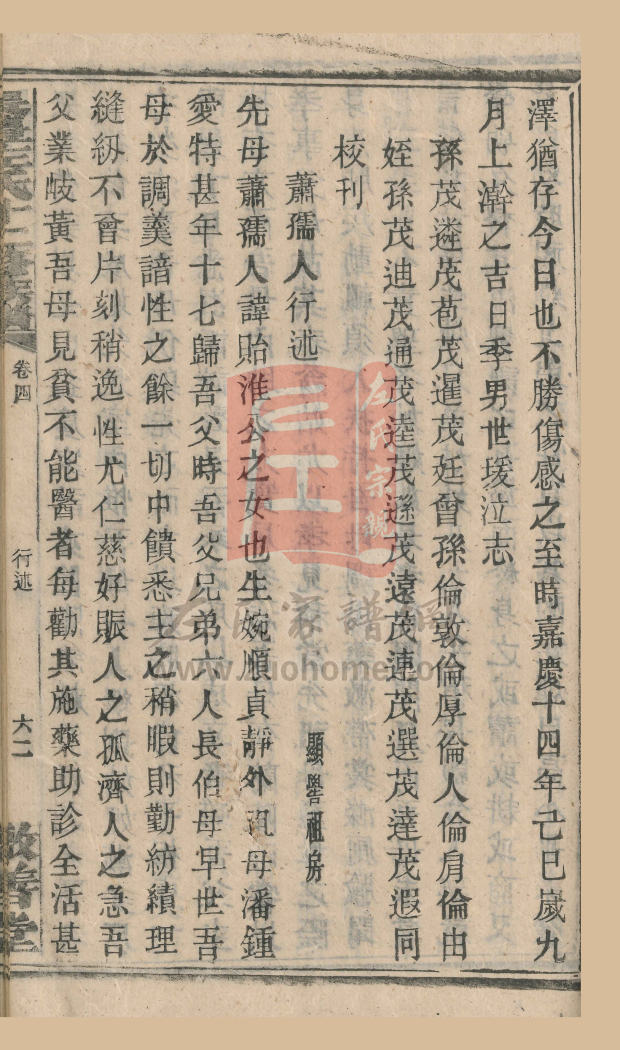 澤猶存今日也不勝傷感之至時嘉慶十四年己巳歲九
月上澣之吉日季男世瑗泣志
孫茂遴茂苞茂暹茂廷曾孫倫敦倫厚倫人倫肩倫由
姪孫茂迪茂通茂逵茂遜茂遠茂連茂選茂達茂遐同
校刊
蕭孺人行述 顯譽祖房
先母蕭孺人諱貽淮公之女也生婉順貞靜外祖母潘鍾
愛特甚年十七歸吾父時吾父兄弟六人長伯母早世吾
母於調羹諳性之餘一切中饋悉主之稍暇則勤紡績理
縫紉不曾片刻稍逸性尤仁慈好賑人之孤濟人之急吾
父業岐黃吾母見貧不能醫者每勸其施藥助診全活甚
卷四
行述
六二
左氏宗親
左氏家譜網
www.zuohome.co